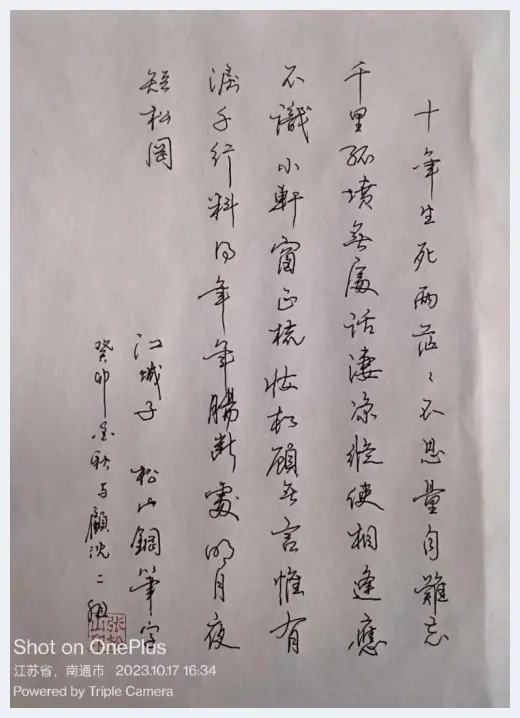 十年生死兩茫〻不思量自難忘
千里孤墳無處話凄凉縱使相逢應
不識小軒窗正梳妝相顧無言惟有
淚千行料得年年腸斷處明月夜
短松岡
江城子 松山鋼筆字
癸卯金秋与顧沈二
张松山印
Shot on OnePlus
江苏省，南通市 2023.10.17 16:34
Powered by Triple Camera